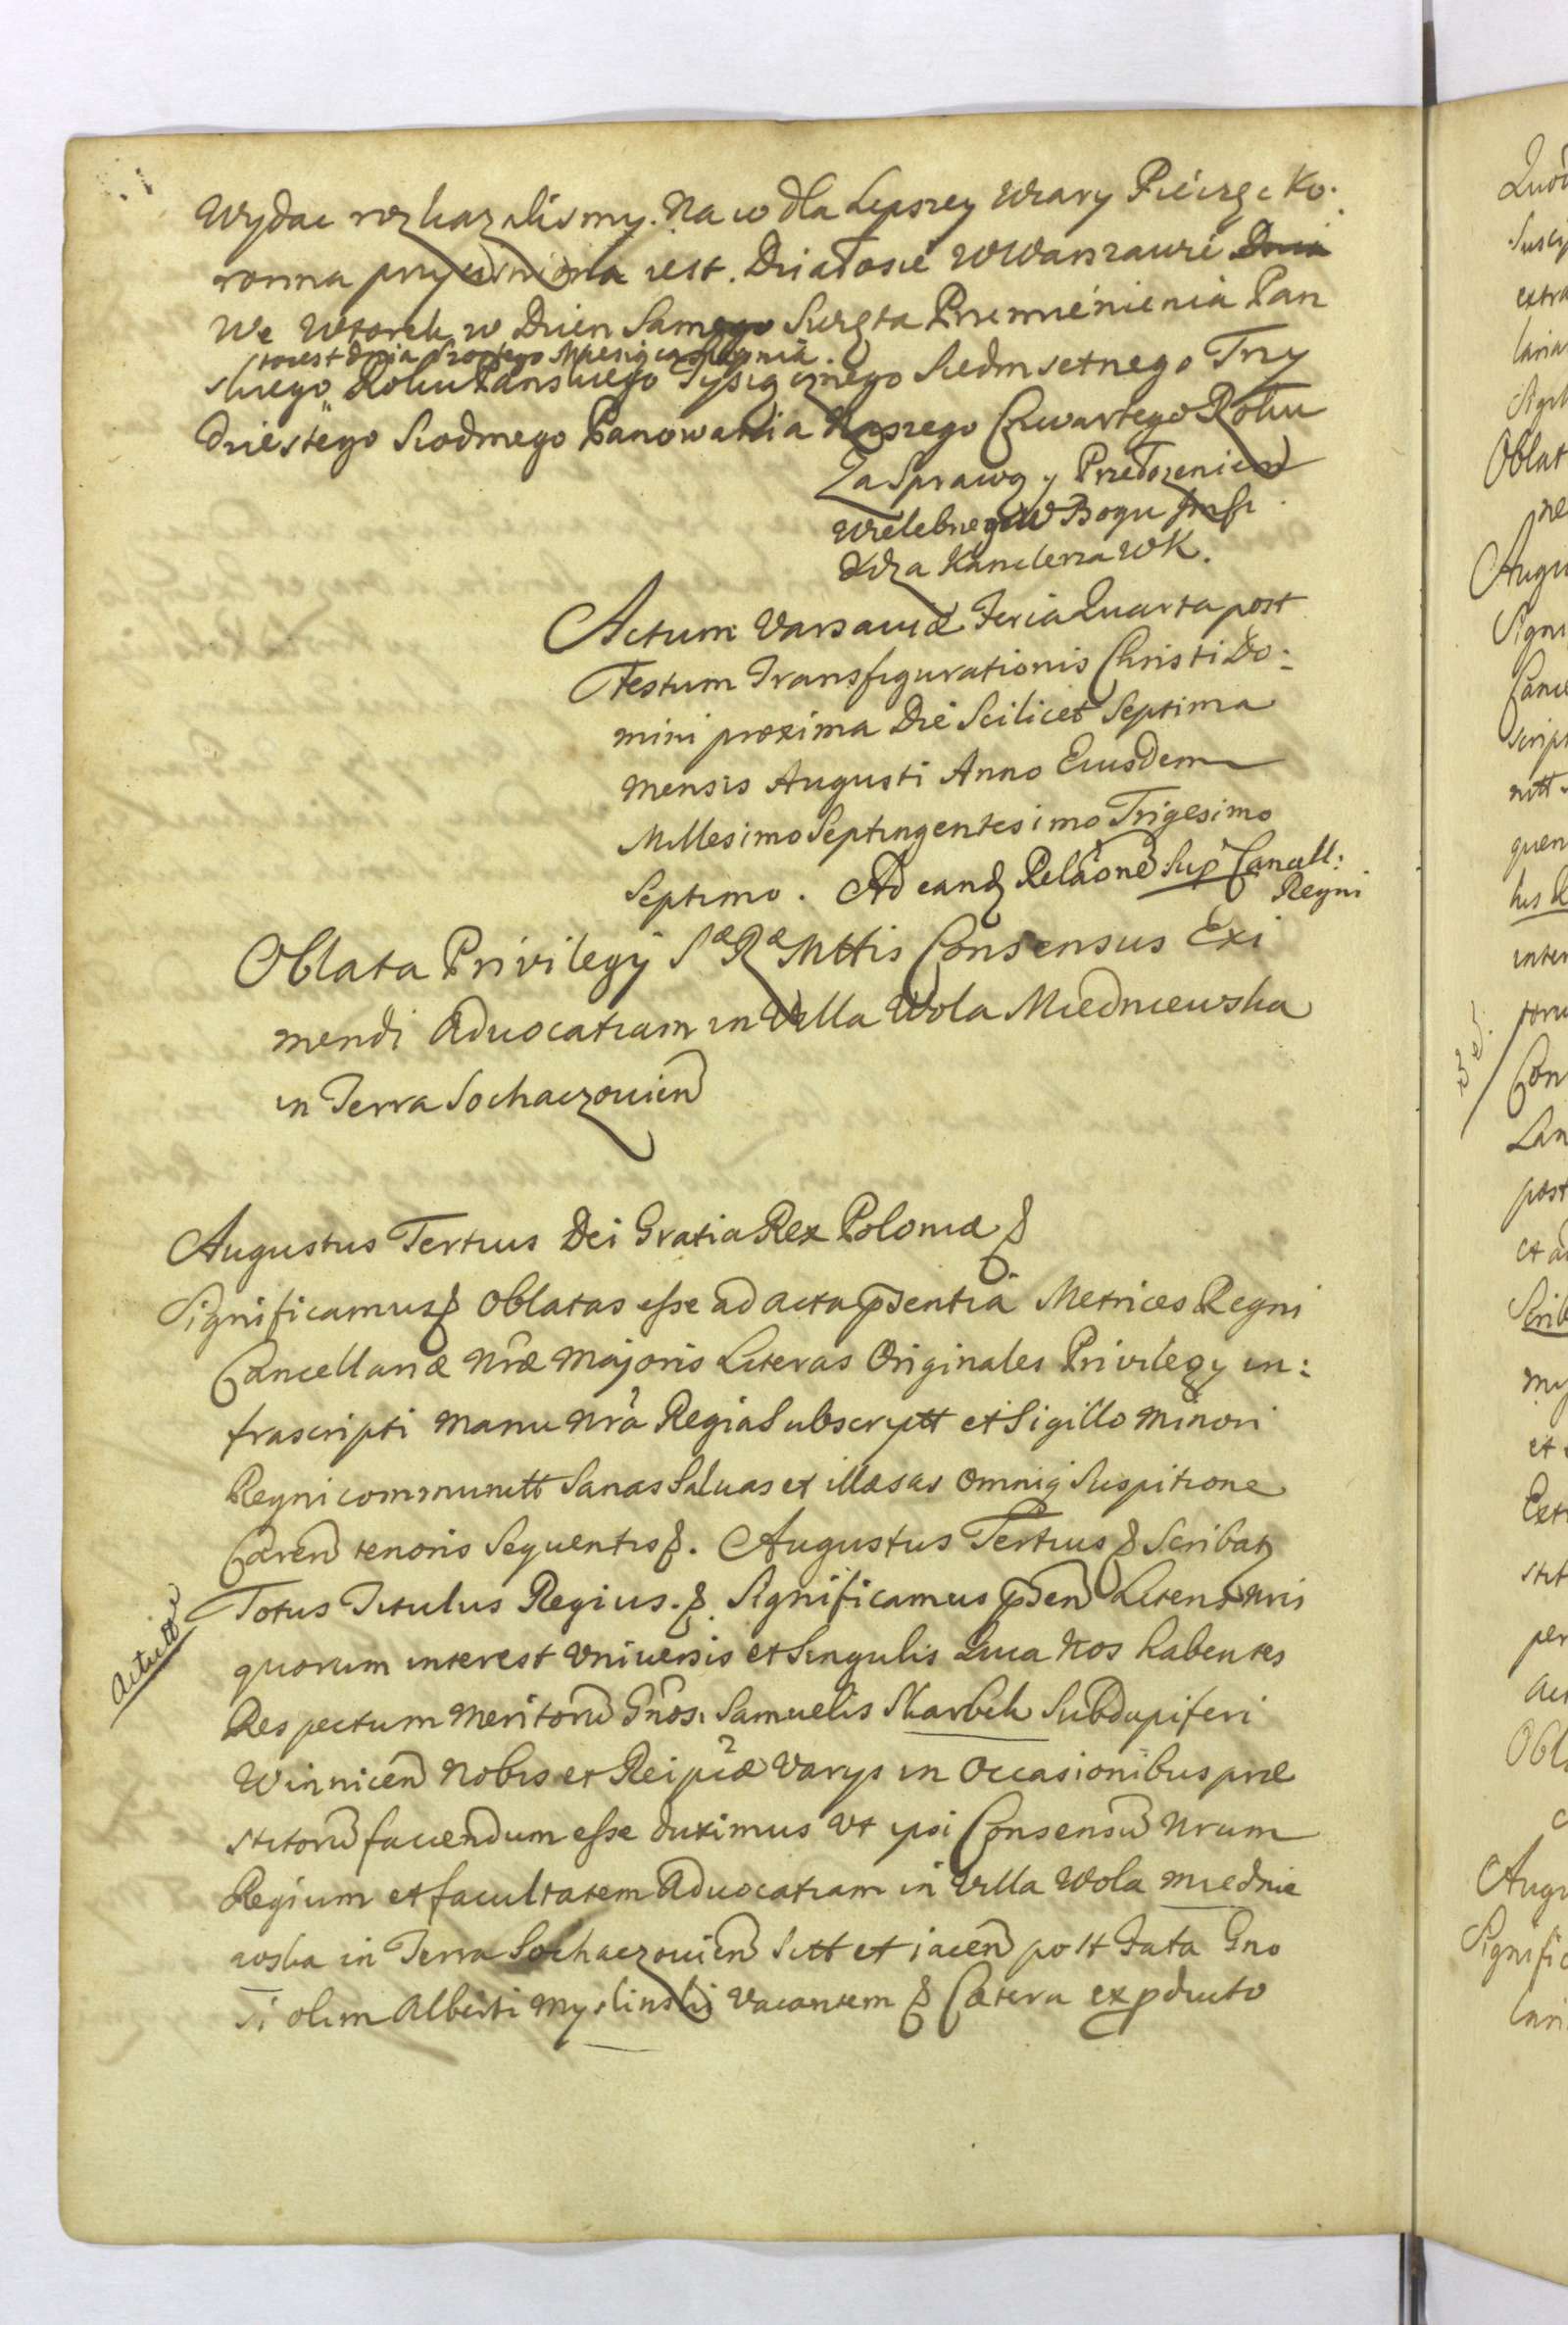 Wydac rozkazalismy. Na co dla Lepszey Wiary Pieczęc Ko:
ronna przycisniona iest. Działosie w Warszawie Dnia
We Wtorek w Dzien Samego Swięta Przemienienia Pan
(to iest dnia Szostego Miesiąca Sierpnia.
skiego Roku Panskiego Tysiącznego Siedmsetnego Trzy
dziestego Siodmego Panowania Naszego Czwartego Roku
Za Sprawą y Przełozeniem
Wielebnego W Bogu
Xdza Kanclerza WK.
Actum Varsaviæ Feria Quarta post
Festum Transfigurationis Christi Do:
mini proxima Die Scilicet Septima
Mensis Augusti Anno Eiusdem
Millesimo Septingentesimo Trigesimo
Septimo. Ad eand Relãone Sup Cancell:
Regni
Oblata Privilegÿ Sæ Ræ Mttis Consensus Exi
mendi Advocatiam in Villa Wola Miedniewska
in Terra Sochaczovien
Augustus Tertius Dei Gratia Rex Poloniæ &
Significamus & Oblatas esse ad acta psentia Metrices Regni
Cancellariæ Nræ Majoris Literas Originales Privilegy in:
frascripti Manu Nrã Regia Subscriptt et Sigillo Minori
Regni communitt Sanas Salvas et illæsas Omniq Suspitione
Caren tenoris Sequentis &. Augustus Tertius & Scribat
Totus Titulus Regius. & Significamus psen Literis Nris
actutt
quorum interest Universis et Singulis Quia Nos habentes
Respectum Meritoru Gnosi Samuelis Skarbek Subdapiferi
Winnicen Nobis et Reipcæ Varys in Occasionibus præ
stitoru faciendum esse duximus Ut ipsi Consensu Nrum
Regium et facultatem Advocatiam in Villa Wola Miednie
wska in Terra Sochaczovien Sitt et iacen post Fata Gno
si olim Alberti Myslinski Vacantem & Cætera ex pducto